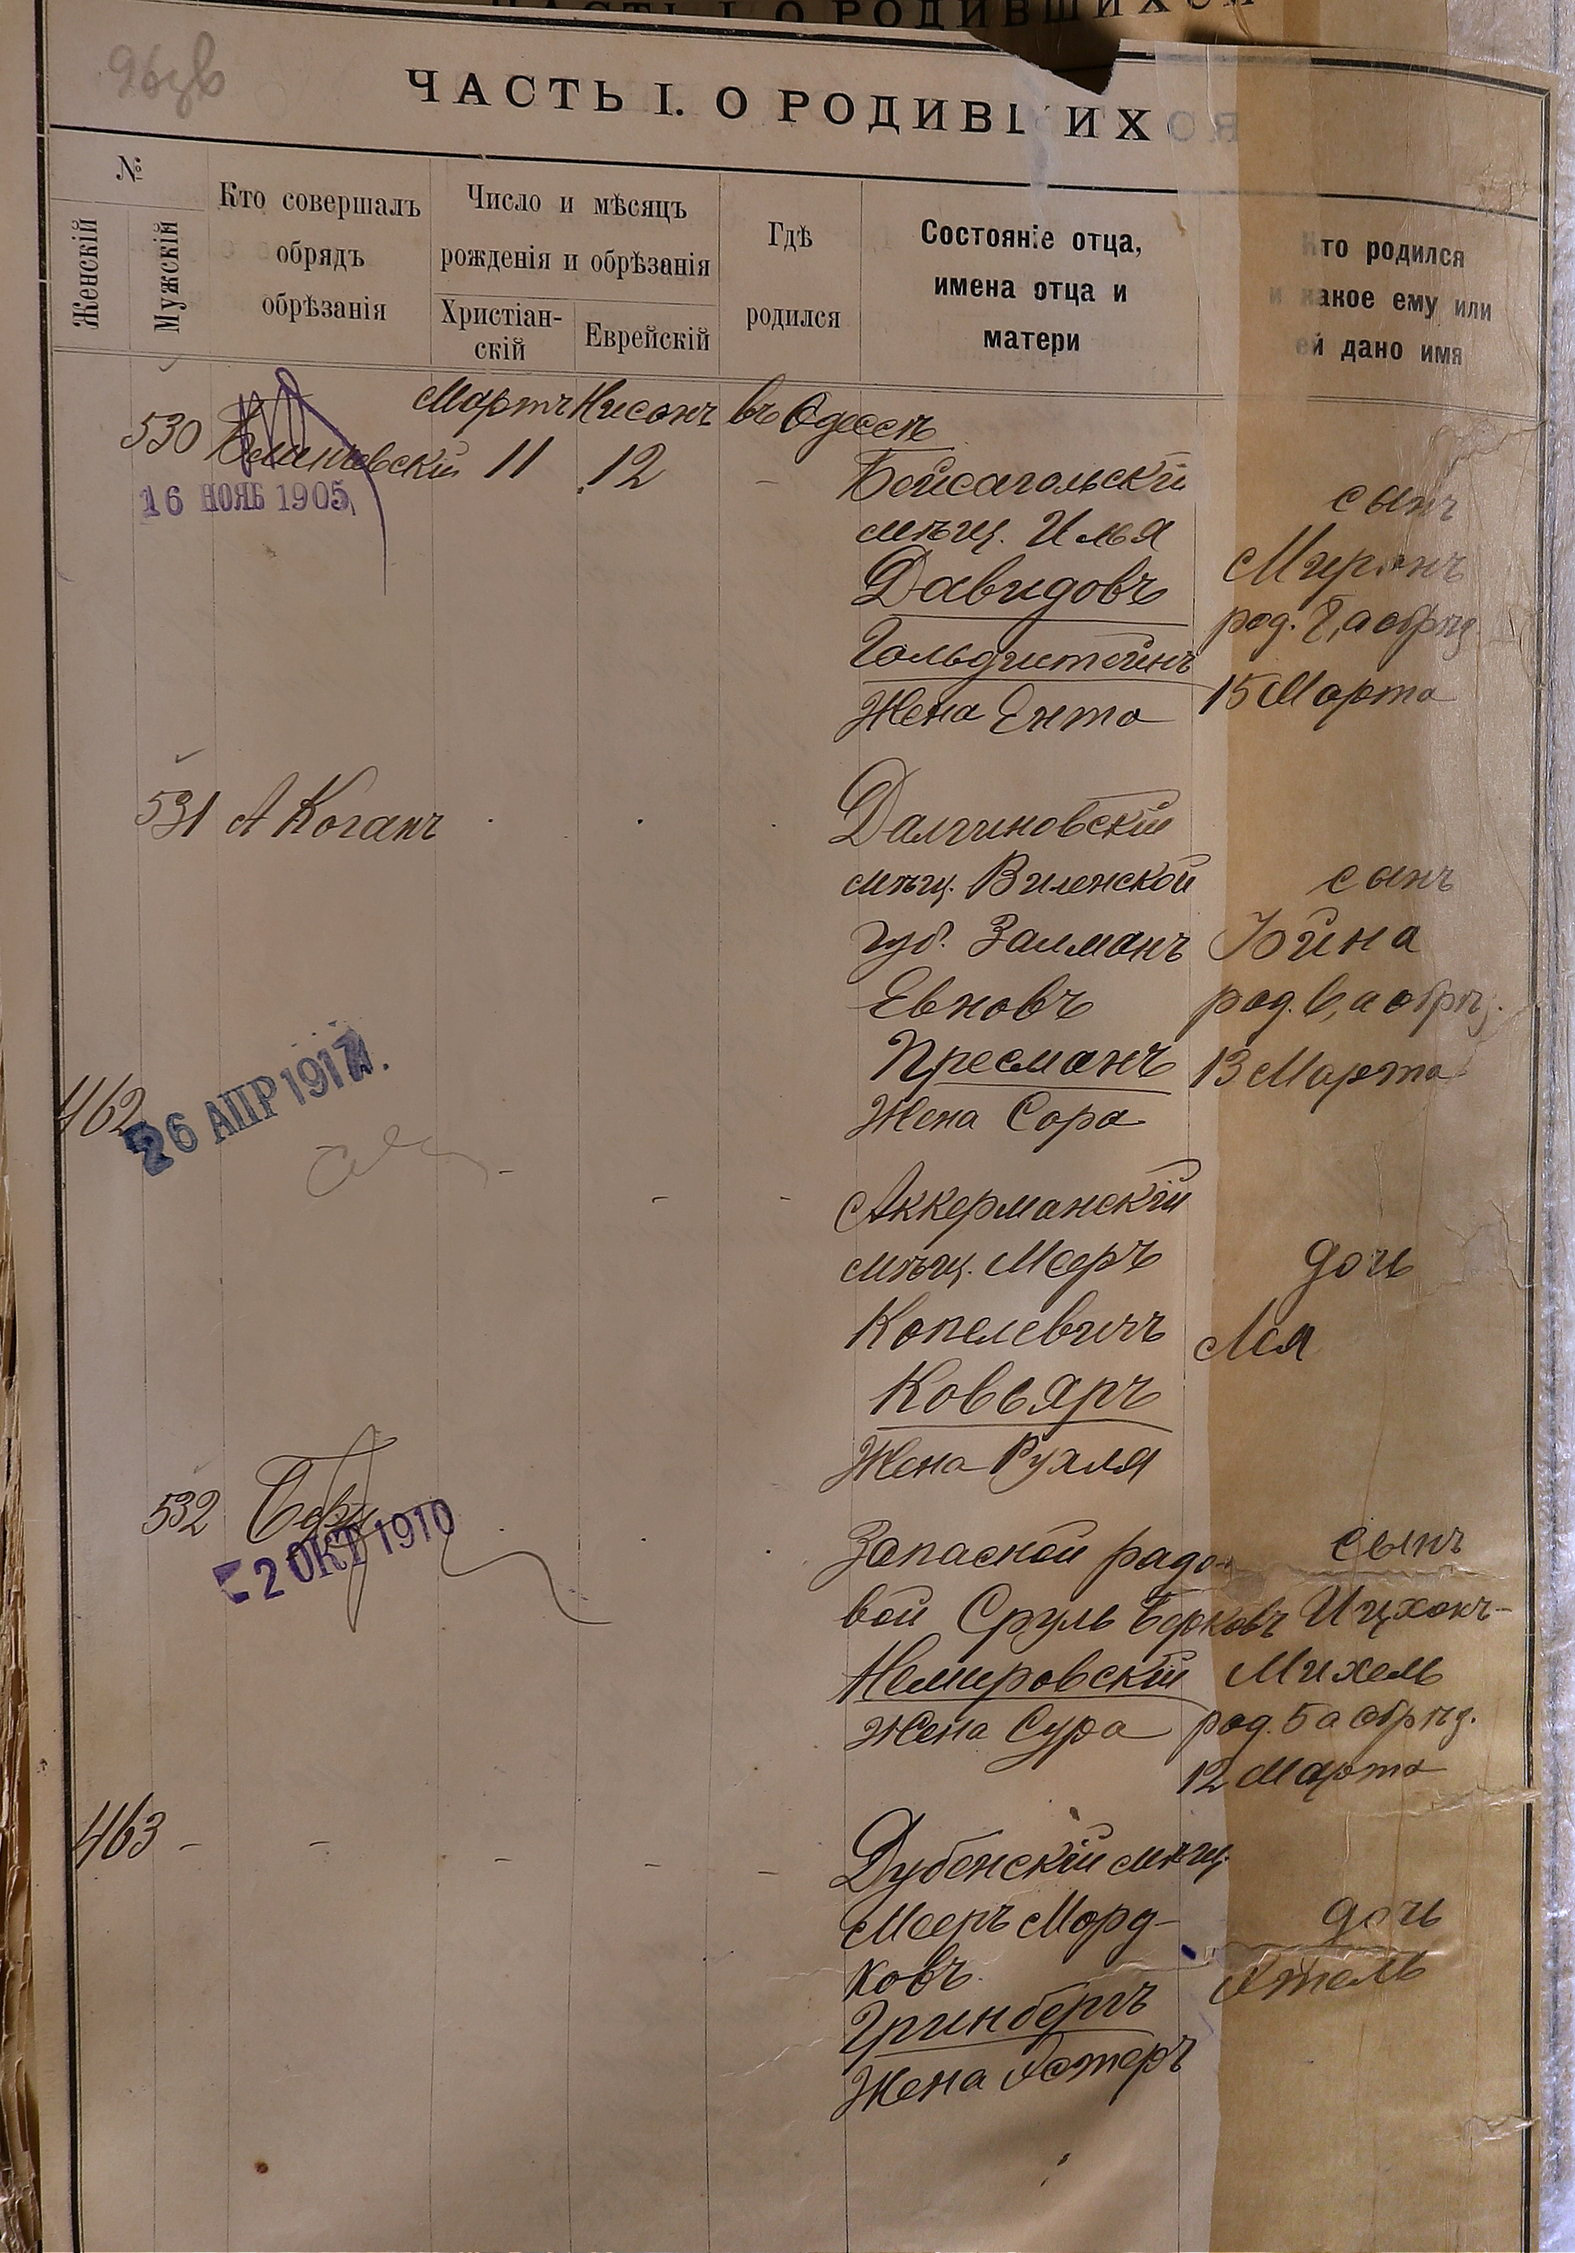 ЧАСТЬ I. О РОДИВШИХСЯ
ЧАСТЬ I. О РОДИВШИХСЯ
№
Женскій
Мужскій
Кто совершалъ
обрядъ
обрѣзанія
Число и мѣсяцъ
рожденія и обрѣзанія
Христіан-
скій
Еврейскій
Гдѣ
родился
Состояніе отца,
имена отца и
матери
Кто родился
и какое ему или
ей дано имя
Мартъ Нисонъ въ Одессѣ
530
11 12
16 НОЯБ 1905
Бейсагольскій
мѣщ. Илья
Давидовъ
Гольдштейнъ
Жена Ента
сынъ
Миронъ
род. 8, а обрѣз
15 Марта
531 А Коганъ
Далгиновскій
мѣщ. Виленской
губ. Залманъ
Евновъ
Пресманъ
Жена Сора
сынъ
Іойна
род. 6, а обрѣз.
13 Марта
462
26 АПР 1917.
Аккерманскій
мѣщ. Мееръ
Копелевичъ
Ковьяръ
Жена Рухля
дочь
Лея
532
-2 ОКТ 1910
Запасной рядо-
вой Сруль Берковъ
Немировскій
Жена Сура
сынъ
Ицхокъ-
Михель
род. 5 а обрѣз.
12 Марта
463 -
Дубенскій мѣщ.
Мееръ Морд-
ковъ
Гринбергъ
Жена Эстеръ
дочь
Этель